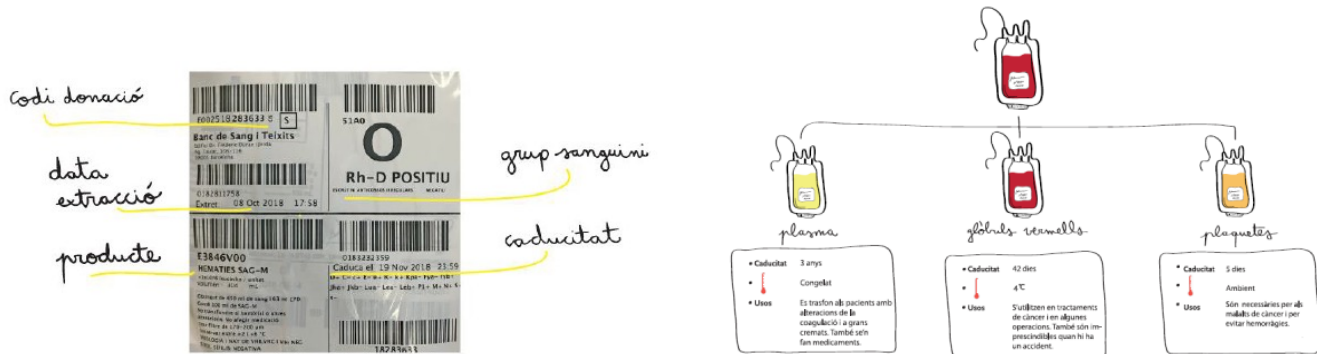 codi donació
data
extracció
producte
E002518283633 S
S
Banc de Sang i Teixits
0182811758
Extret 08 Oct 2018 17:58
E3846V00
HEMATIES SAG-M
51A0
O
Rh-D POSITIU
0183232359
Caduca el 19 Nov 2018 23:59
18283633
grup sanguini
caducitat
plasma
• Caducitat 3 anys
• Congelat
• Usos Es trasfon als pacients amb
alteracions de la
coagulació i a grans
cremats. També se'n
fan medicaments.
glòbuls vermells
• Caducitat 42 dies
• 4°C
• Usos S'utilitzen en tractaments
de càncer i en algunes
operacions. També són im-
prescindibles quan hi ha
un accident.
plaquetes
• Caducitat 5 dies
• Ambient
• Usos Són necessàries per als
malalts de càncer i per
evitar hemorràgies.